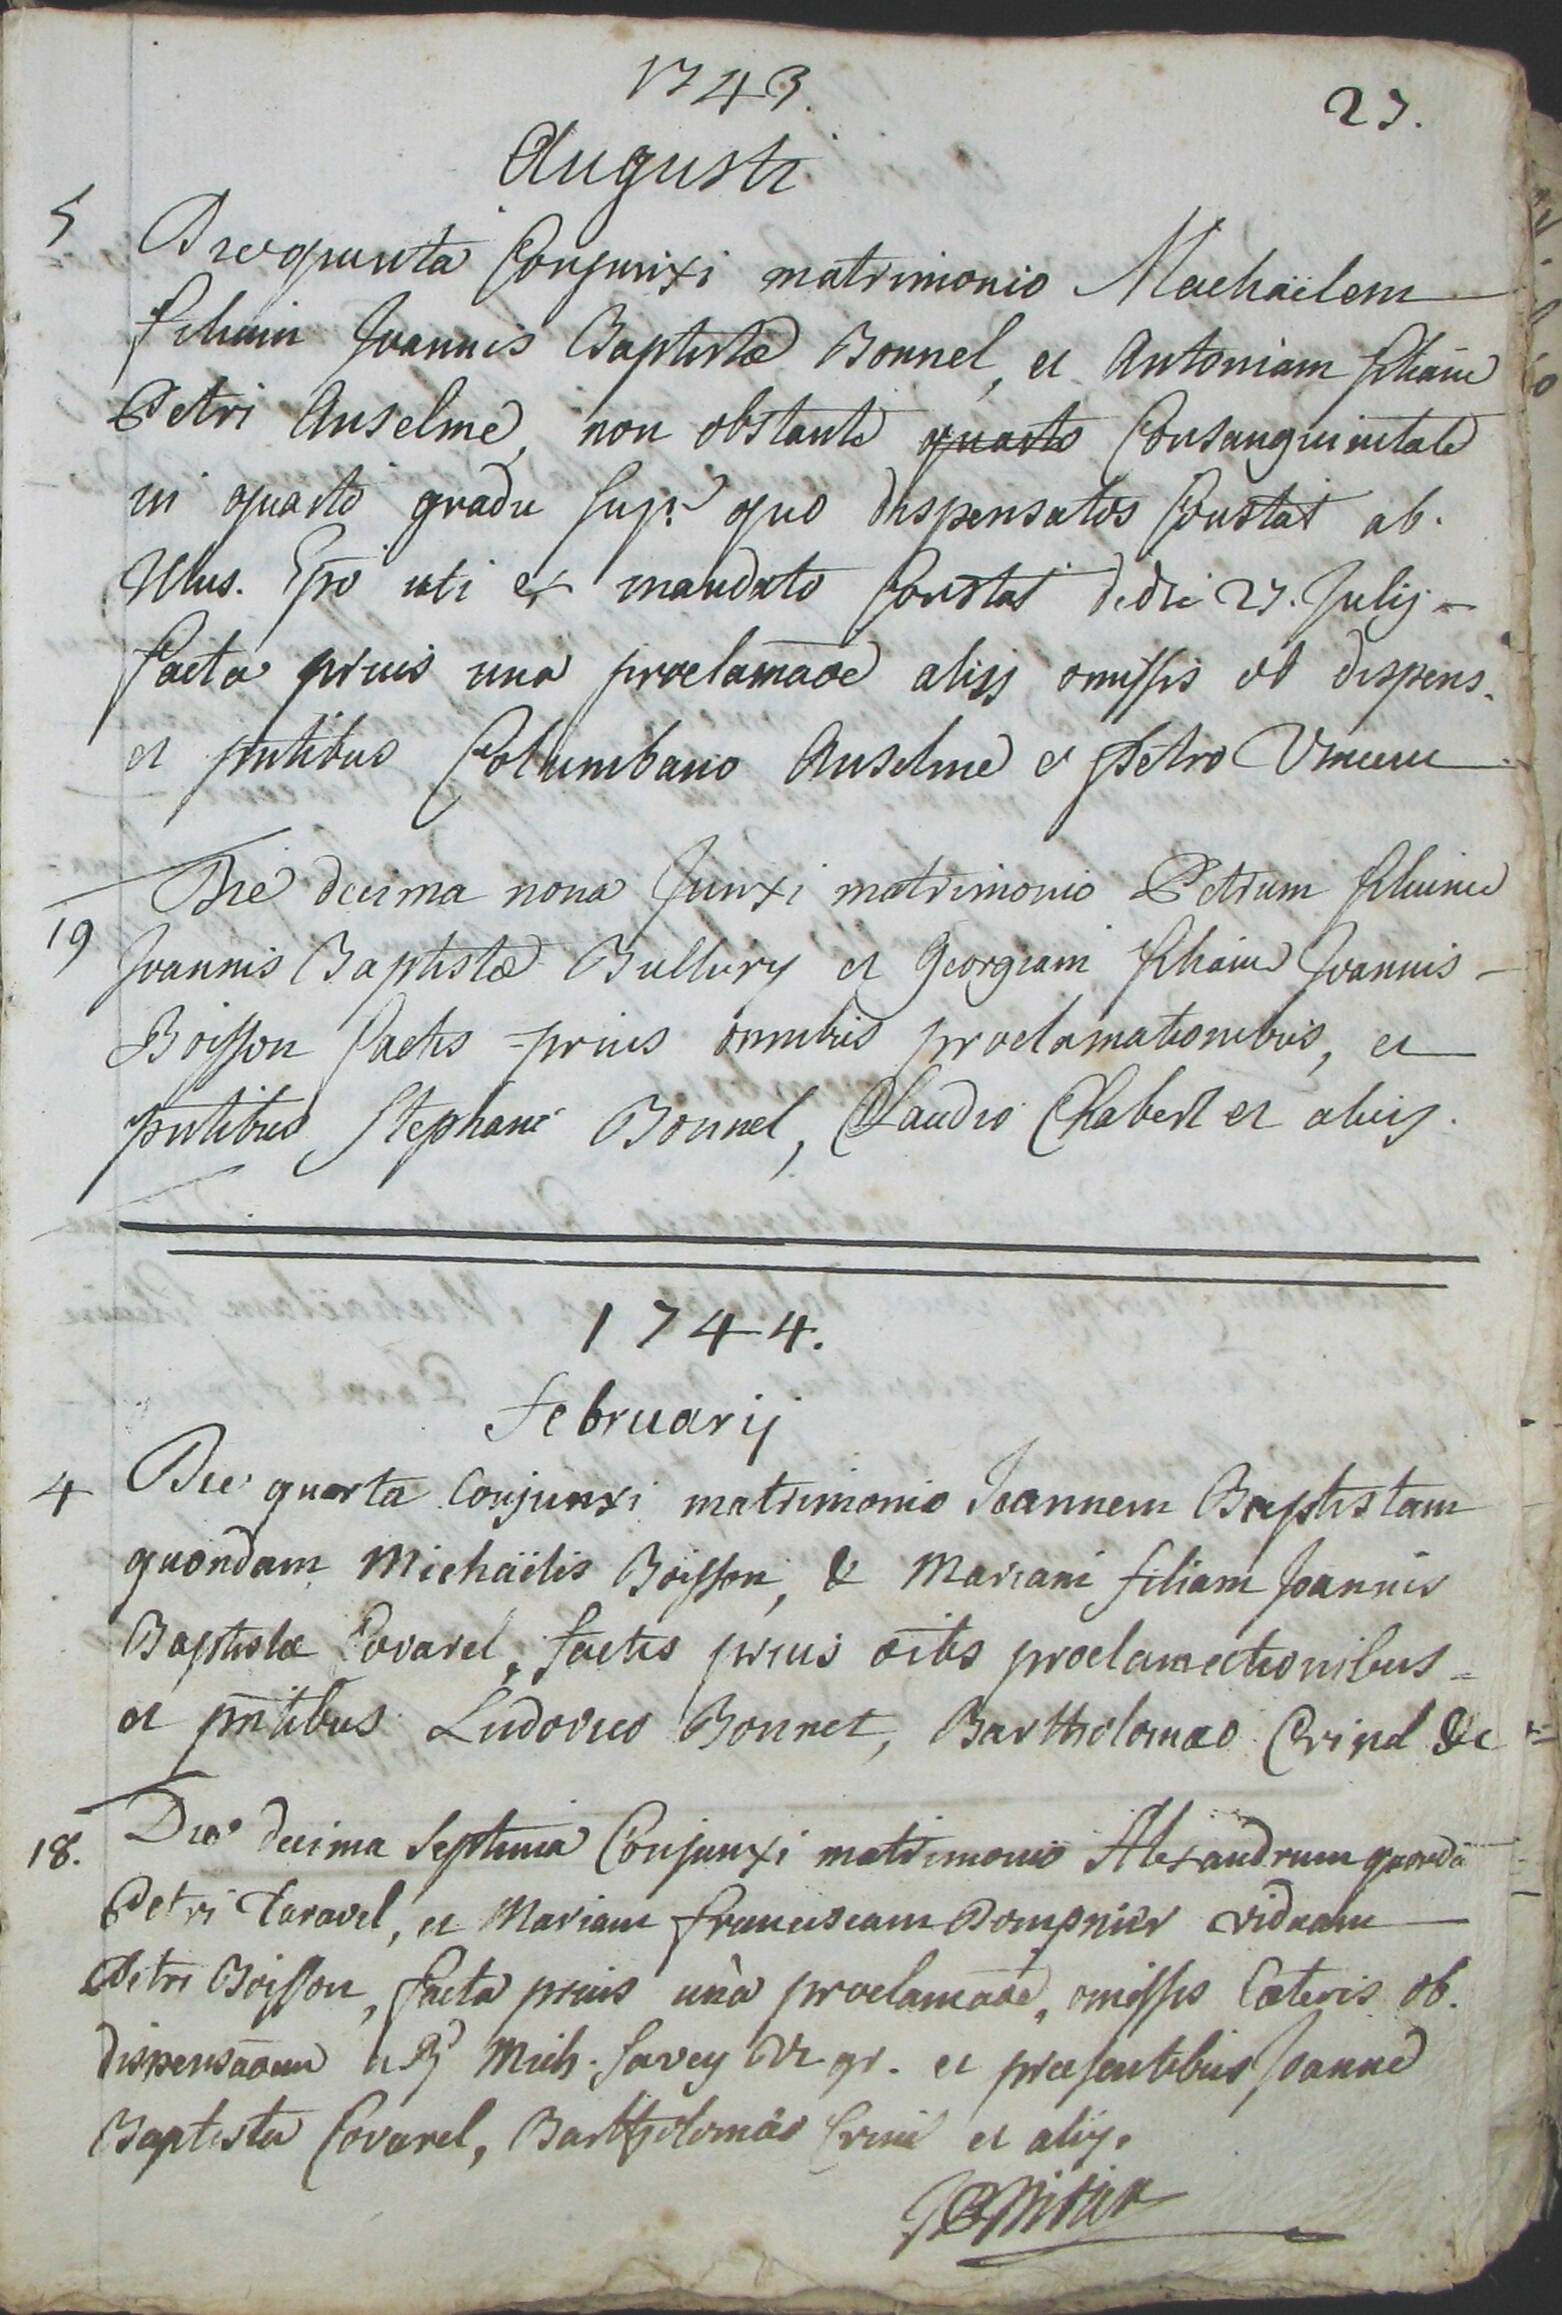 1743.
27.
Augusti
5
Die quinta Conjunxi matrimonio Michaëlem
filium Joannis Baptistæ Bonnel, et Antoniam filiam
Petri Anselme, non obstante quarto Consanguinitate
in quarto gradu sup. quo dispensatos Constat ab.
Illus. Epo uti ex mandato Constat dedie 27. Julij
facta prius una proclamaoe alijs omissis ob dispens.
et pntibus Columbano Anselme et Petro
19
Die decima nona Junxi matrimonio Petrum filium
Joannis Baptistæ et Georgiam filiam Joannis
Boisson factis prius omnibus proclamationibus, et
pntibus Stephano Bonnel, Claudio Chabert et alijs.
1744.
februarij
4
Die quarta Conjunxi matrimonio Joannem Baptistam
quondam Michaëlis Boisson, & Mariam filiam Joannis
Baptistæ Covarel, factis prius oibs proclamationibus
et pntibus Ludovico Bonnet, Bartholomæo &c
18.
Die decima Septima Conjunxi matrimonio Alexandrum quondã
Petri Taravel, et Mariam franciscam Dompnier viduam
Petri Boisson, facta prius unà proclamaoe, omissis Cæteris ob.
dispensãoem a Rd Mich. Savey Vic gr. et præsentibus Joanne
Baptista Covarel, Bartholomæo et alijs.